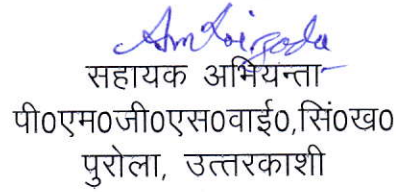 सहायक अभियन्ता
पी0एम0जी0एस0वाई0,सिं0ख0
पुरोला, उत्तरकाशी